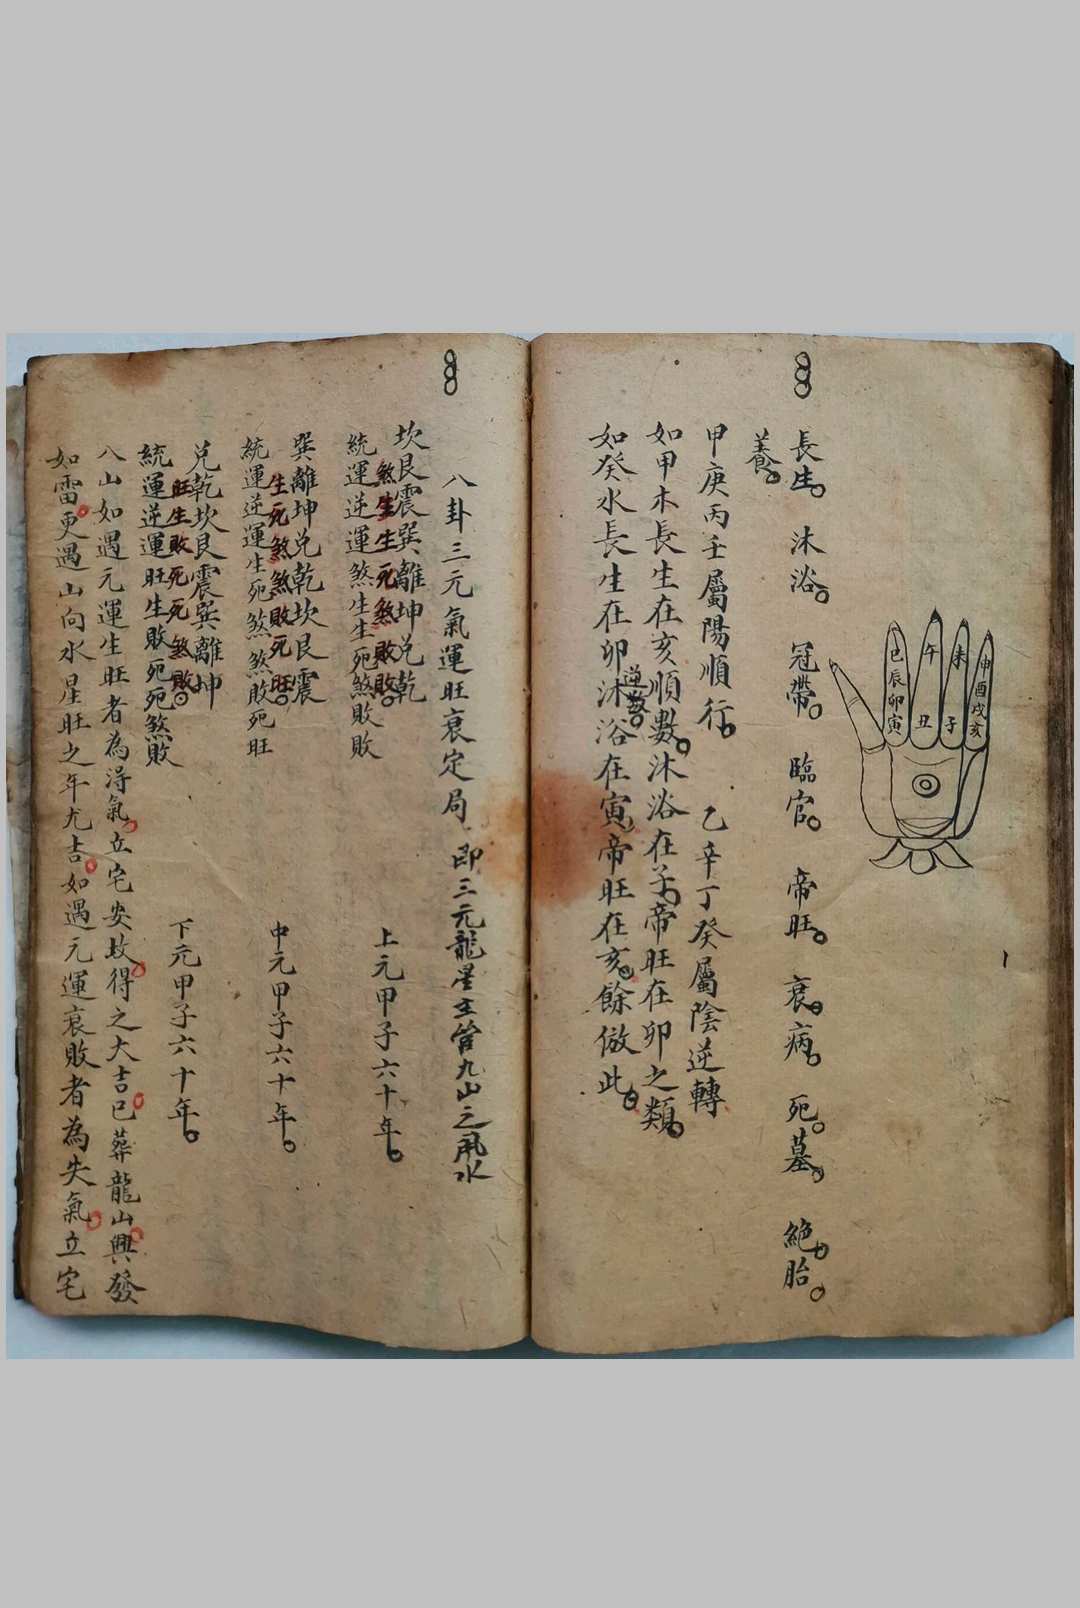 巳辰卯寅
午丑
未子
申酉戌亥
長生。沐浴。冠帶。臨官。帝旺。衰。病。死。墓。絕。胎。
養。
甲庚丙壬屬陽順行。乙辛丁癸屬陰逆轉
如甲木長生在亥順數。沐浴在子。帝旺在卯之類。
逆数。
如癸水長生在卯沐浴在寅帝旺在亥。餘倣此。
八卦三元氣運旺衰定局 即三元龍星主管九山之風水
坎艮震巽離坤兑乾
煞生生死煞敗敗。
統運逆運煞生生死煞敗敗
上元甲子六十年。
巽離坤兑乾坎艮震
生死煞煞敗死旺。
統運逆運生死煞煞敗死旺
中元甲子六十年。
兑乾坎艮震巽離坤
旺生敗死死煞敗。
統運逆運旺生敗死死煞敗
下元甲子六十年。
八山如遇元運生旺者為淂氣。立宅安坟。得之大吉。已葬龍山。興發
如雷。更遇山向水星旺之年尤吉。如遇元運衰敗者為失氣。立宅